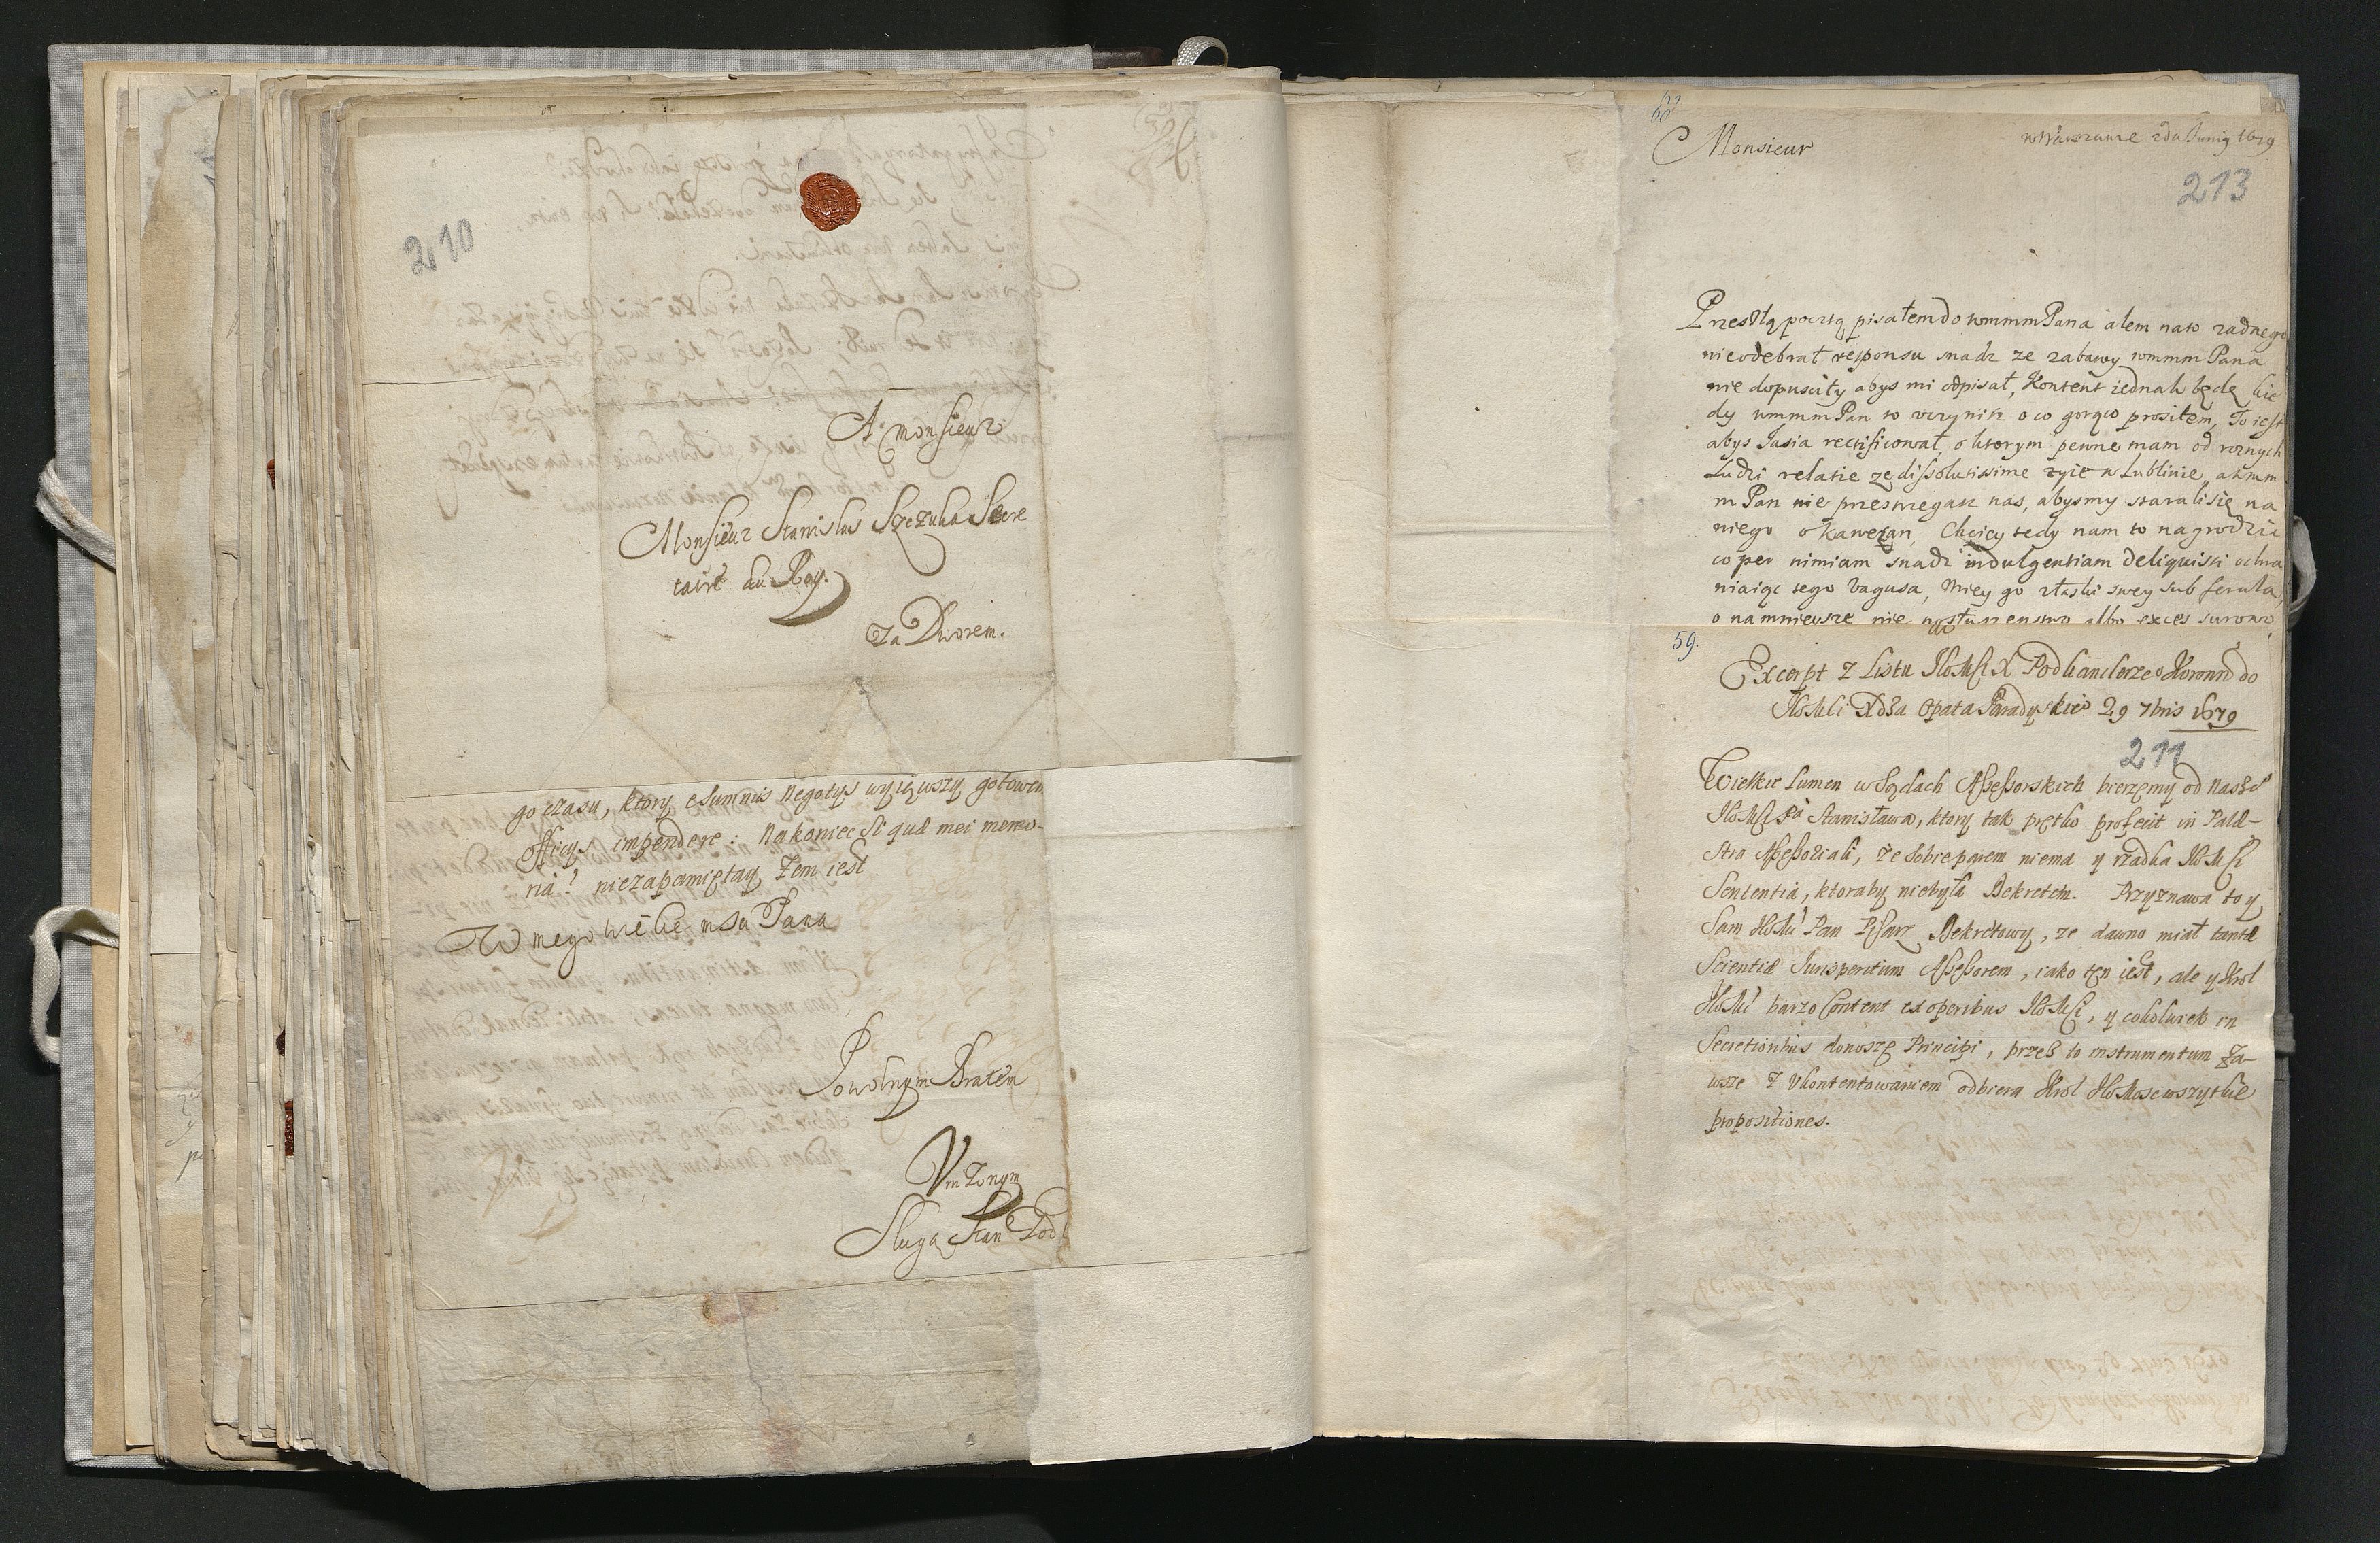 210
A monsieur
Monsieur Stanislas Szczuka Secre
taire du Roy.
Za Dworem.
go czasu, ktory e summis negotys wyiąwszy gotowem
officys impendere: Nakoniec si qua mei memo-
ria! niezapamiętay żem iest
W mego wielce msci Pana
Powolnym Bratem
Uniżonym
Sługą Stan
60
Monsieur
w Warszawie Junij 1679
213
Przeszłą pocztą pisałem do wmmmPana alem na to zadnego
nie odebrał responsu snadz ze zabawy wmmm Pana
nie dopusciły abys mi odpisał, Kontent iednak będę kie
dy wmmm Pan to uczynisz o co gorąco prosiłem, To iest
abys Jasia rectificował, o ktorym pewne mam od roznych
Ludzi relatie ze dissolutissime zyie w Lublinie, a wmm
m Pan nie przestrzegasz nas, abysmy starali się na
niego o kawecan, Chciey tedy nam to nagrodzic
co per nimiam snadz indulgentiam deliquisti ochra
niaiąc tego Vagusa, Miey go z łaski swey sub ferula,
o namnieysze nie posłuszenstwo albo exces surowo
59.
Excerpt z Listu JKoMsci X Podkanclerzego Koronnego do
JKoMsci Xdza Opata Paradyskiego 29 7bris 1679
211
Wielkie lumen w Sądach Assessorskich bierzemy od nasze°
JKoMsci Pa Stanisława, ktory tak prętko profecit in Palæ-
stra Assessoriali, że sobie parem niema y rzadka JKoMsci
Sententia, ktoraby niebyła Dekretem. Przyznawa to y
Sam JKoMć Pan Pisarz Dekretowy, ze dawno miał tantæ
Scientiæ Jurisperitum Assessorem, iako ten iest, ale y Krol
JKoMć barzo Content ex operibus JKoMsci, y cokolwiek in
Secretioribus donoszę Principi, przez to instrumentum za-
wsze z Ukontentowaniem odbiera Krol JKoMosc wszytkie
propositiones.